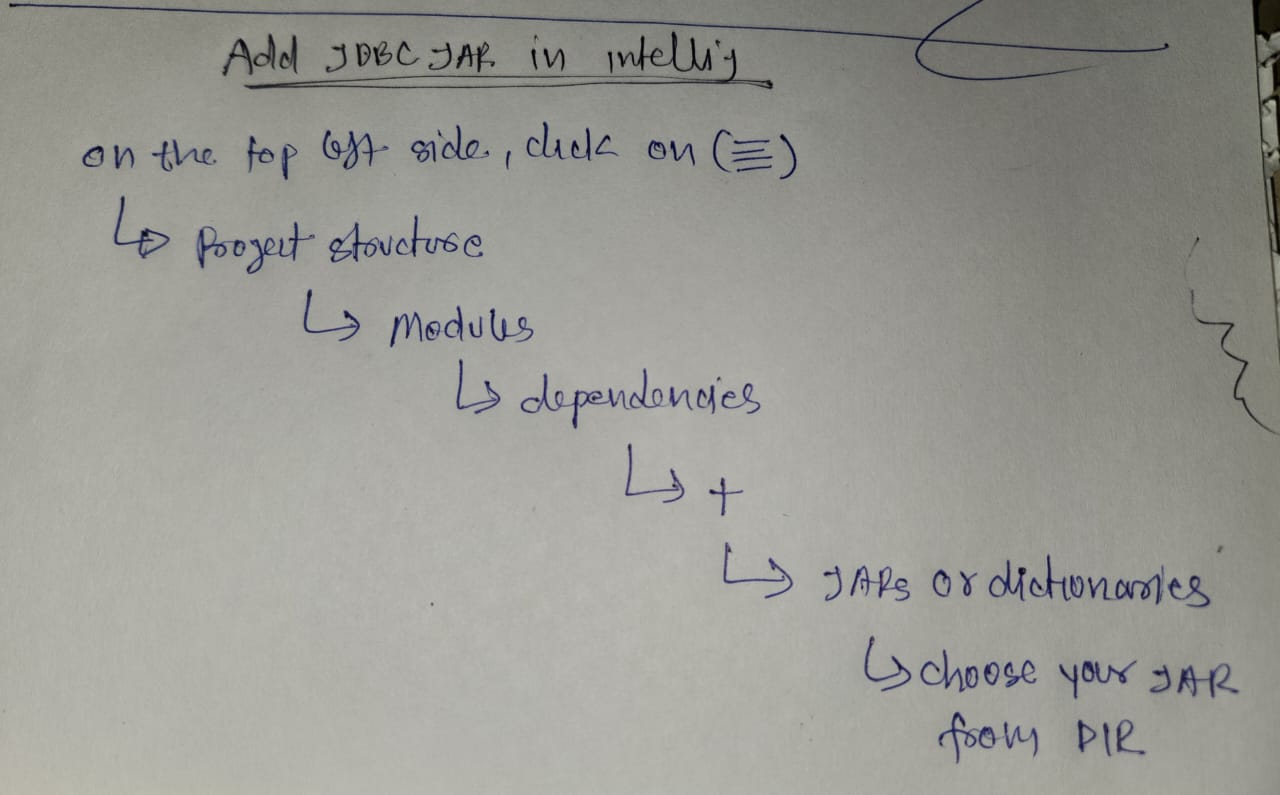 Add JDBC JAR in intellij
on the top left side, click on (≡)
↳ Project structure
↳ Modules
↳ dependencies
↳ +
↳ JARs or dictionaries
↳ choose your JAR
from DIR